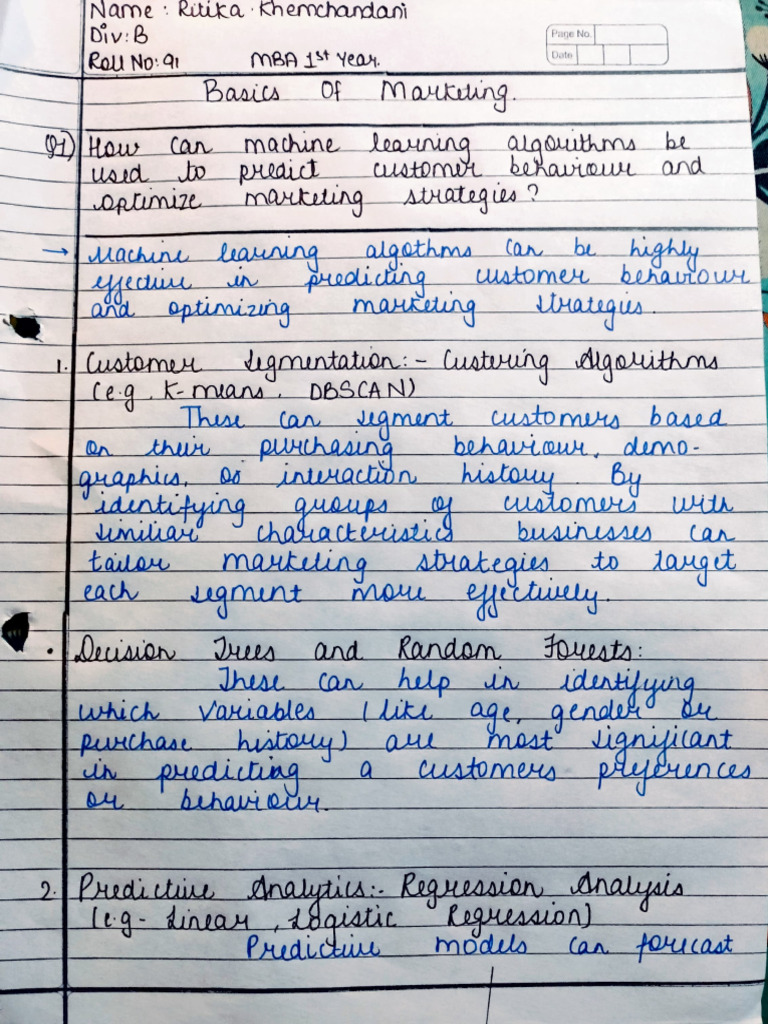 Name : Ritika Khemchandani
Div: B
Roll No: 91 MBA 1st Year.
Page No.
Date
Basics Of Marketing.
Q1) How can machine learning algorithms be
used to predict customer behaviour and
optimize marketing strategies ?
→ Machine learning algothms can be highly
effective in predicting customer behaviour
and optimizing marketing strategies.
1. Customer Segmentation:- Custering Algorithms
(e.g. K-means, DBSCAN)
These can segment customers based
on their purchasing behaviour, demo-
graphics, or interaction history. By
identifying groups of customers with
similiar characteristics businesses can
tailor marketing strategies to target
each segment more effectively.
• Decision Trees and Random Forests:
These can help in identifying
which variables (like age, gender or
purchase history) are most significant
in predicting a customers preferences
or behaviour.
2. Predictive Analytics:- Regression Analysis
(e.g- Linear, Logistic Regression)
Predictive models can forecast